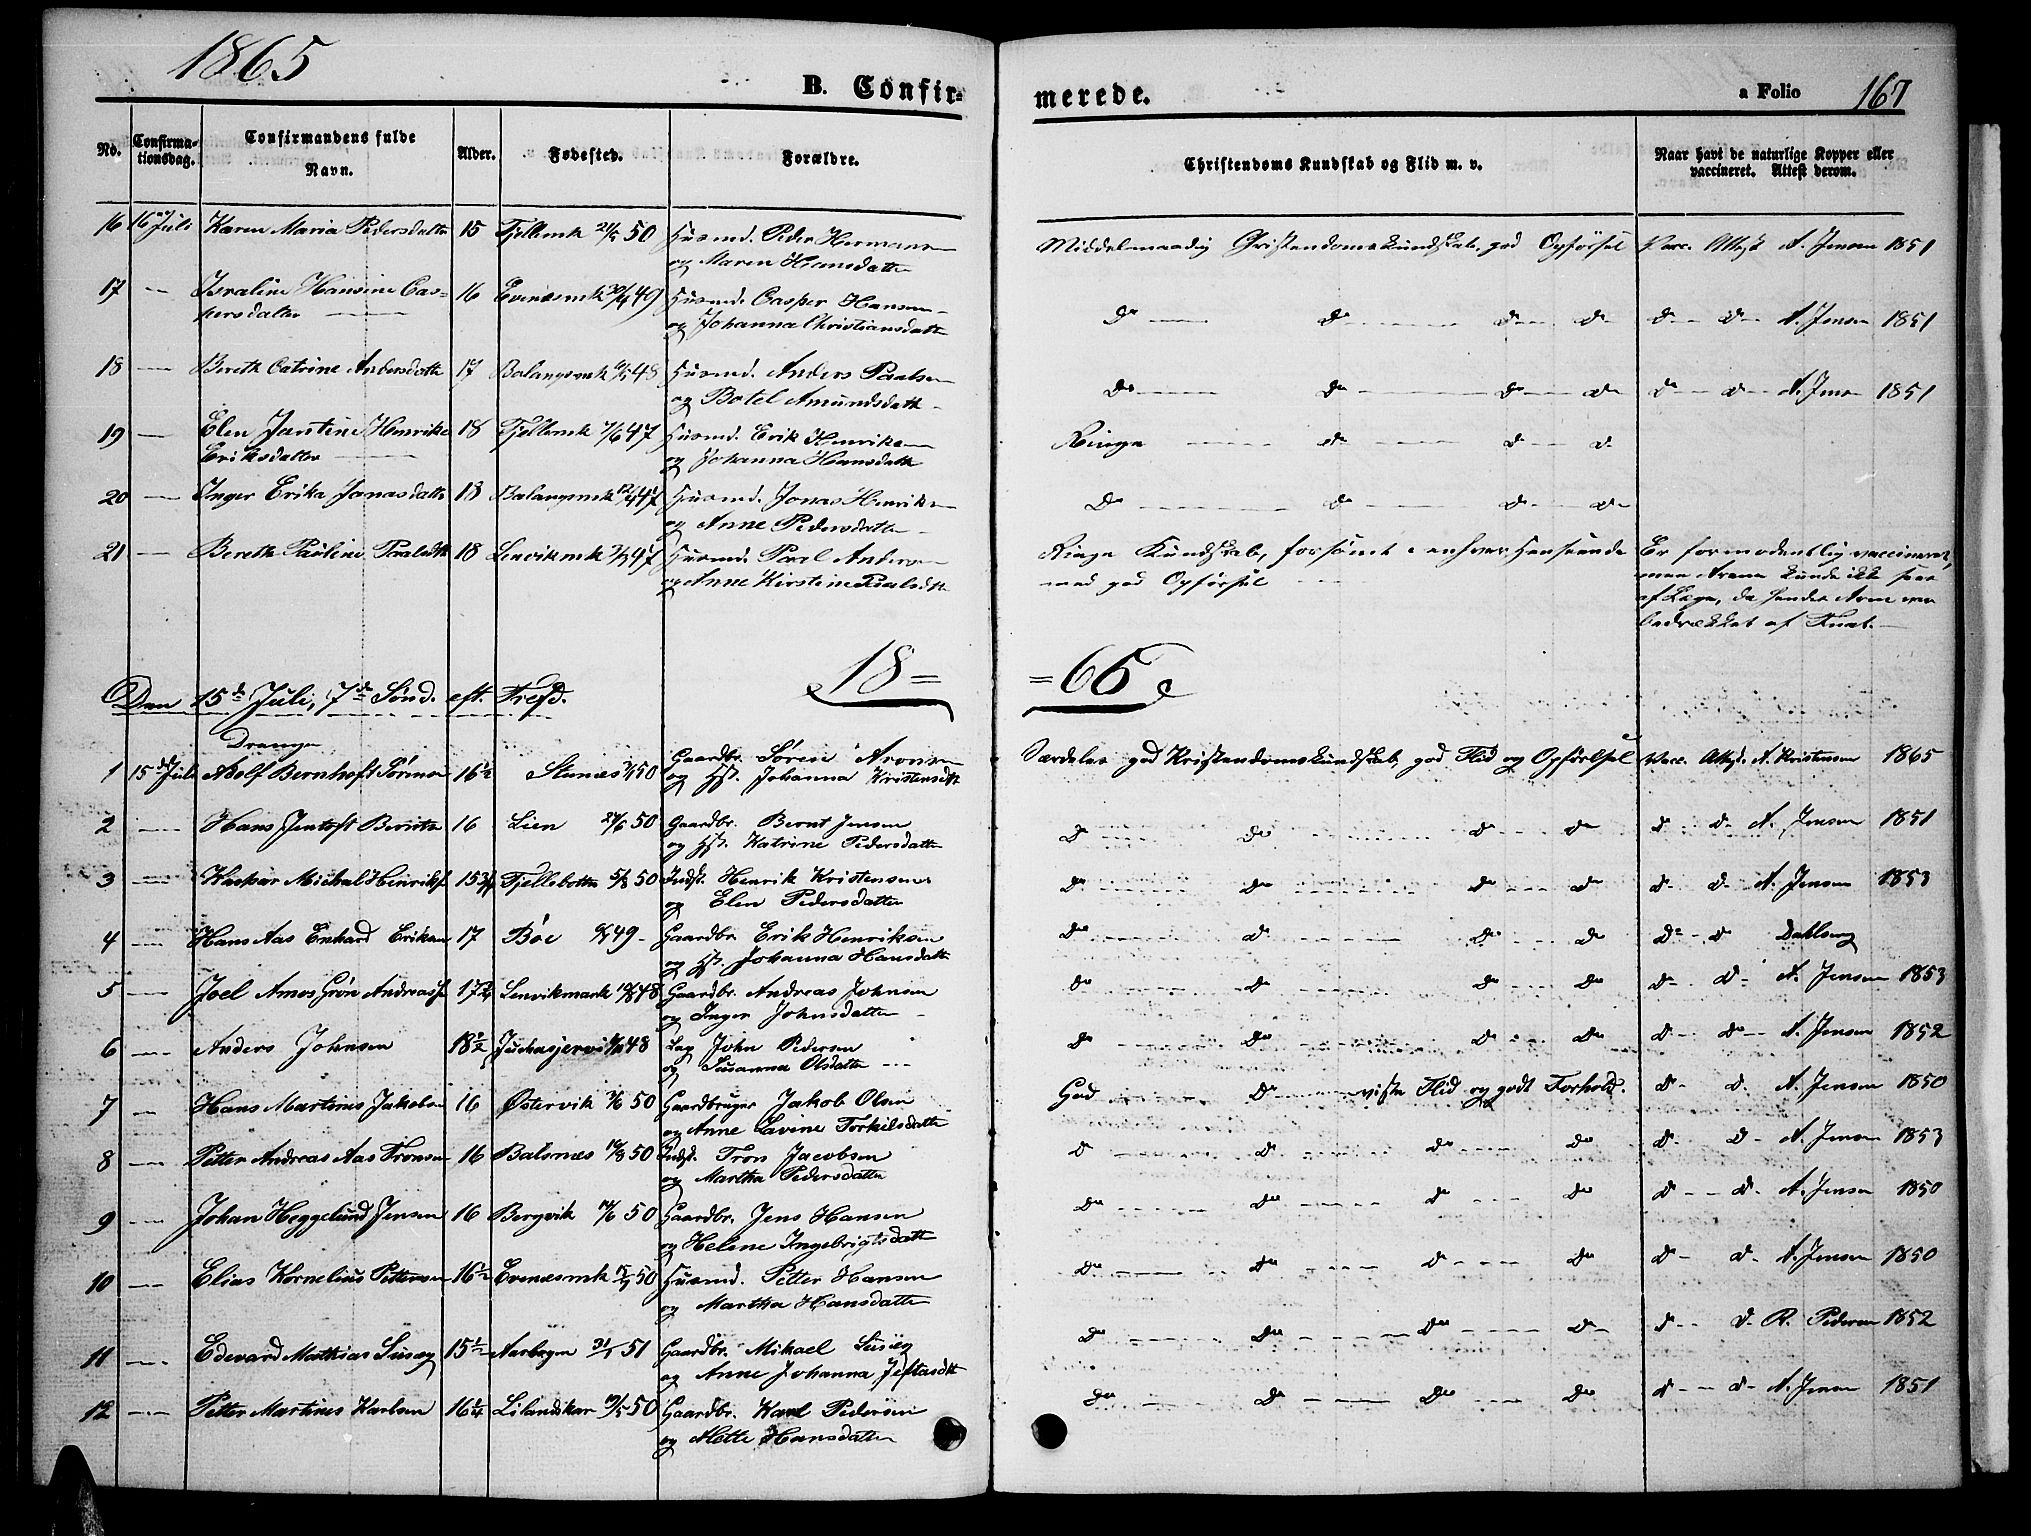 1865
B. Confir-
merede.
a Folio 167
No.
Confirma-
tionsdag.
Confirmandens fulde
Navn.
Alder.
Fødested.
Forældre.
Christendoms Kundskab og Flid m. v.
Naar havt de naturlige Kopper eller
vaccineret. Attest derom.
16 16de Juli Karen Maria Pedersdatter 15 Fjeldmk 50 Husmd. Peder Hermansen
og Maren Hansdatter
Middelmaadig Christendomskundskab, god Opførsel Vacc. Attest A. Jensen 1851
17 — Israline Hansine Cas-
persdatter 16 Evenesmk 49 Husmd. Casper Hansen
og Johanna Christiansdatter
Do Do Do Do Do Do A. Jensen 1851
18 — Bereth Catrine Andersdatter 17 Balangsmk 48 Husmd. Anders Paalsen
og Botel Amundsdatter
Do Do Do Do Do Do A. Jensen 1851
19 — Elen Jantine Henrikke
Eriksdatter 18 Fjeldmk 47 Husmd. Erik Henriksen
og Johanna Hansdatter
Ringe Do Do Do
20 — Inger Erika Jonasdatter 18 Balangsmk 47 Husmd. Jonas Henriksen
og Anne Pedersdatter
Do Do Do Do
21 — Bereth Pauline Paalsdtr 18 Lenvikmk 47 Husmd. Paul Andersen
og Anne Kirstine Paalsdtr
Ringe Kundskab, forsømt i enhver Henseende
med god Opførsel
Er formodentlig vaccineret,
men Arene kunde ikke sees
af Læge, da hendes Arme var
bedrækket af Fnat.
18 =
= 66
Den 15de Juli, 7de Sønd. eft. Trefd.
Drenge
1 15de Juli Adolf Bernhoft Sørensen 16½ Stenæs 50 Gaardbr. Søren Aronsen
og Hst. Johanna Kristensdtr
Særdeles god Kristendomskundskab, god Flid og Opførsel Vacc. Attest. A. Kristensen 1865
2 — Hans Jentoft Berntsen 16 Lien 27/6 50 Gaardbr. Bernt Jensen
og Hst. Katrine Pedersdatter
Do Do Do Do Do Do A. Jensen 1851
3 — Kaspar Michal Henriks. 15¾ Fjeldbotten 5/8 50 Indst. Henrik Kristensen
og Elen Pedersdatter
Do Do Do Do Do Do A. Jensen 1853
4 — Hans Aas Enhard Eriksen 17 Bøe 49 Gaardbr. Erik Henriksen
og Hst. Johanna Hansdatter
Do Do Do Do Do Do
5 — Joel Amos Grøn Andreass. 17¾ Lenvikmark 48 Gaardbr. Andreas Johnsen
og Inger Johnsdatter
Do Do Do Do Do Do A. Jensen 1853
6 — Anders Johnsen 18½ Juckasjervi 48 Lap John Pedersen
og Susanna Olsdatter
Do Do Do Do Do Do A. Jensen 1852
7 — Hans Martinus Jakobsen 16 Østervik 50 Gaardbruger Jakob Olsen
og Anne Lavine Torkilsdatter
God Do viste Flid og godt Forhold. Do Do A. Jensen 1850
8 — Petter Andreas Aas Tronsen 16 Balsnæs 50 Indst. Tron Jacobsen
og Martha Pedersdatter
Do Do Do Do Do Do A. Jensen 1853
9 — Johan Heggelund Jensen 16 Bergvik 50 Gaardbr. Jens Hansen
og Helene Ingebrigtsdatter
Do Do Do Do Do Do A. Jensen 1850
10 — Elias Kornelius Pettersen 16½ Evenæsmk 50 Husmd. Petter Hansen
og Martha Hansdatter
Do Do Do Do Do Do A. Jensen 1850
11 — Edevard Mathias Susæg 15½ 51 Gaardbr. Mikael Susæg
og Anne Johanna Jeftasdtr
Do Do Do Do Do Do R. Pedersen 1852
12 — Petter Martines Karlsen 16¼ Lilandskar 50 Gaardbr. Karl Pedersen
og Mette Hansdatter
Do Do Do Do Do Do A. Jensen 1851